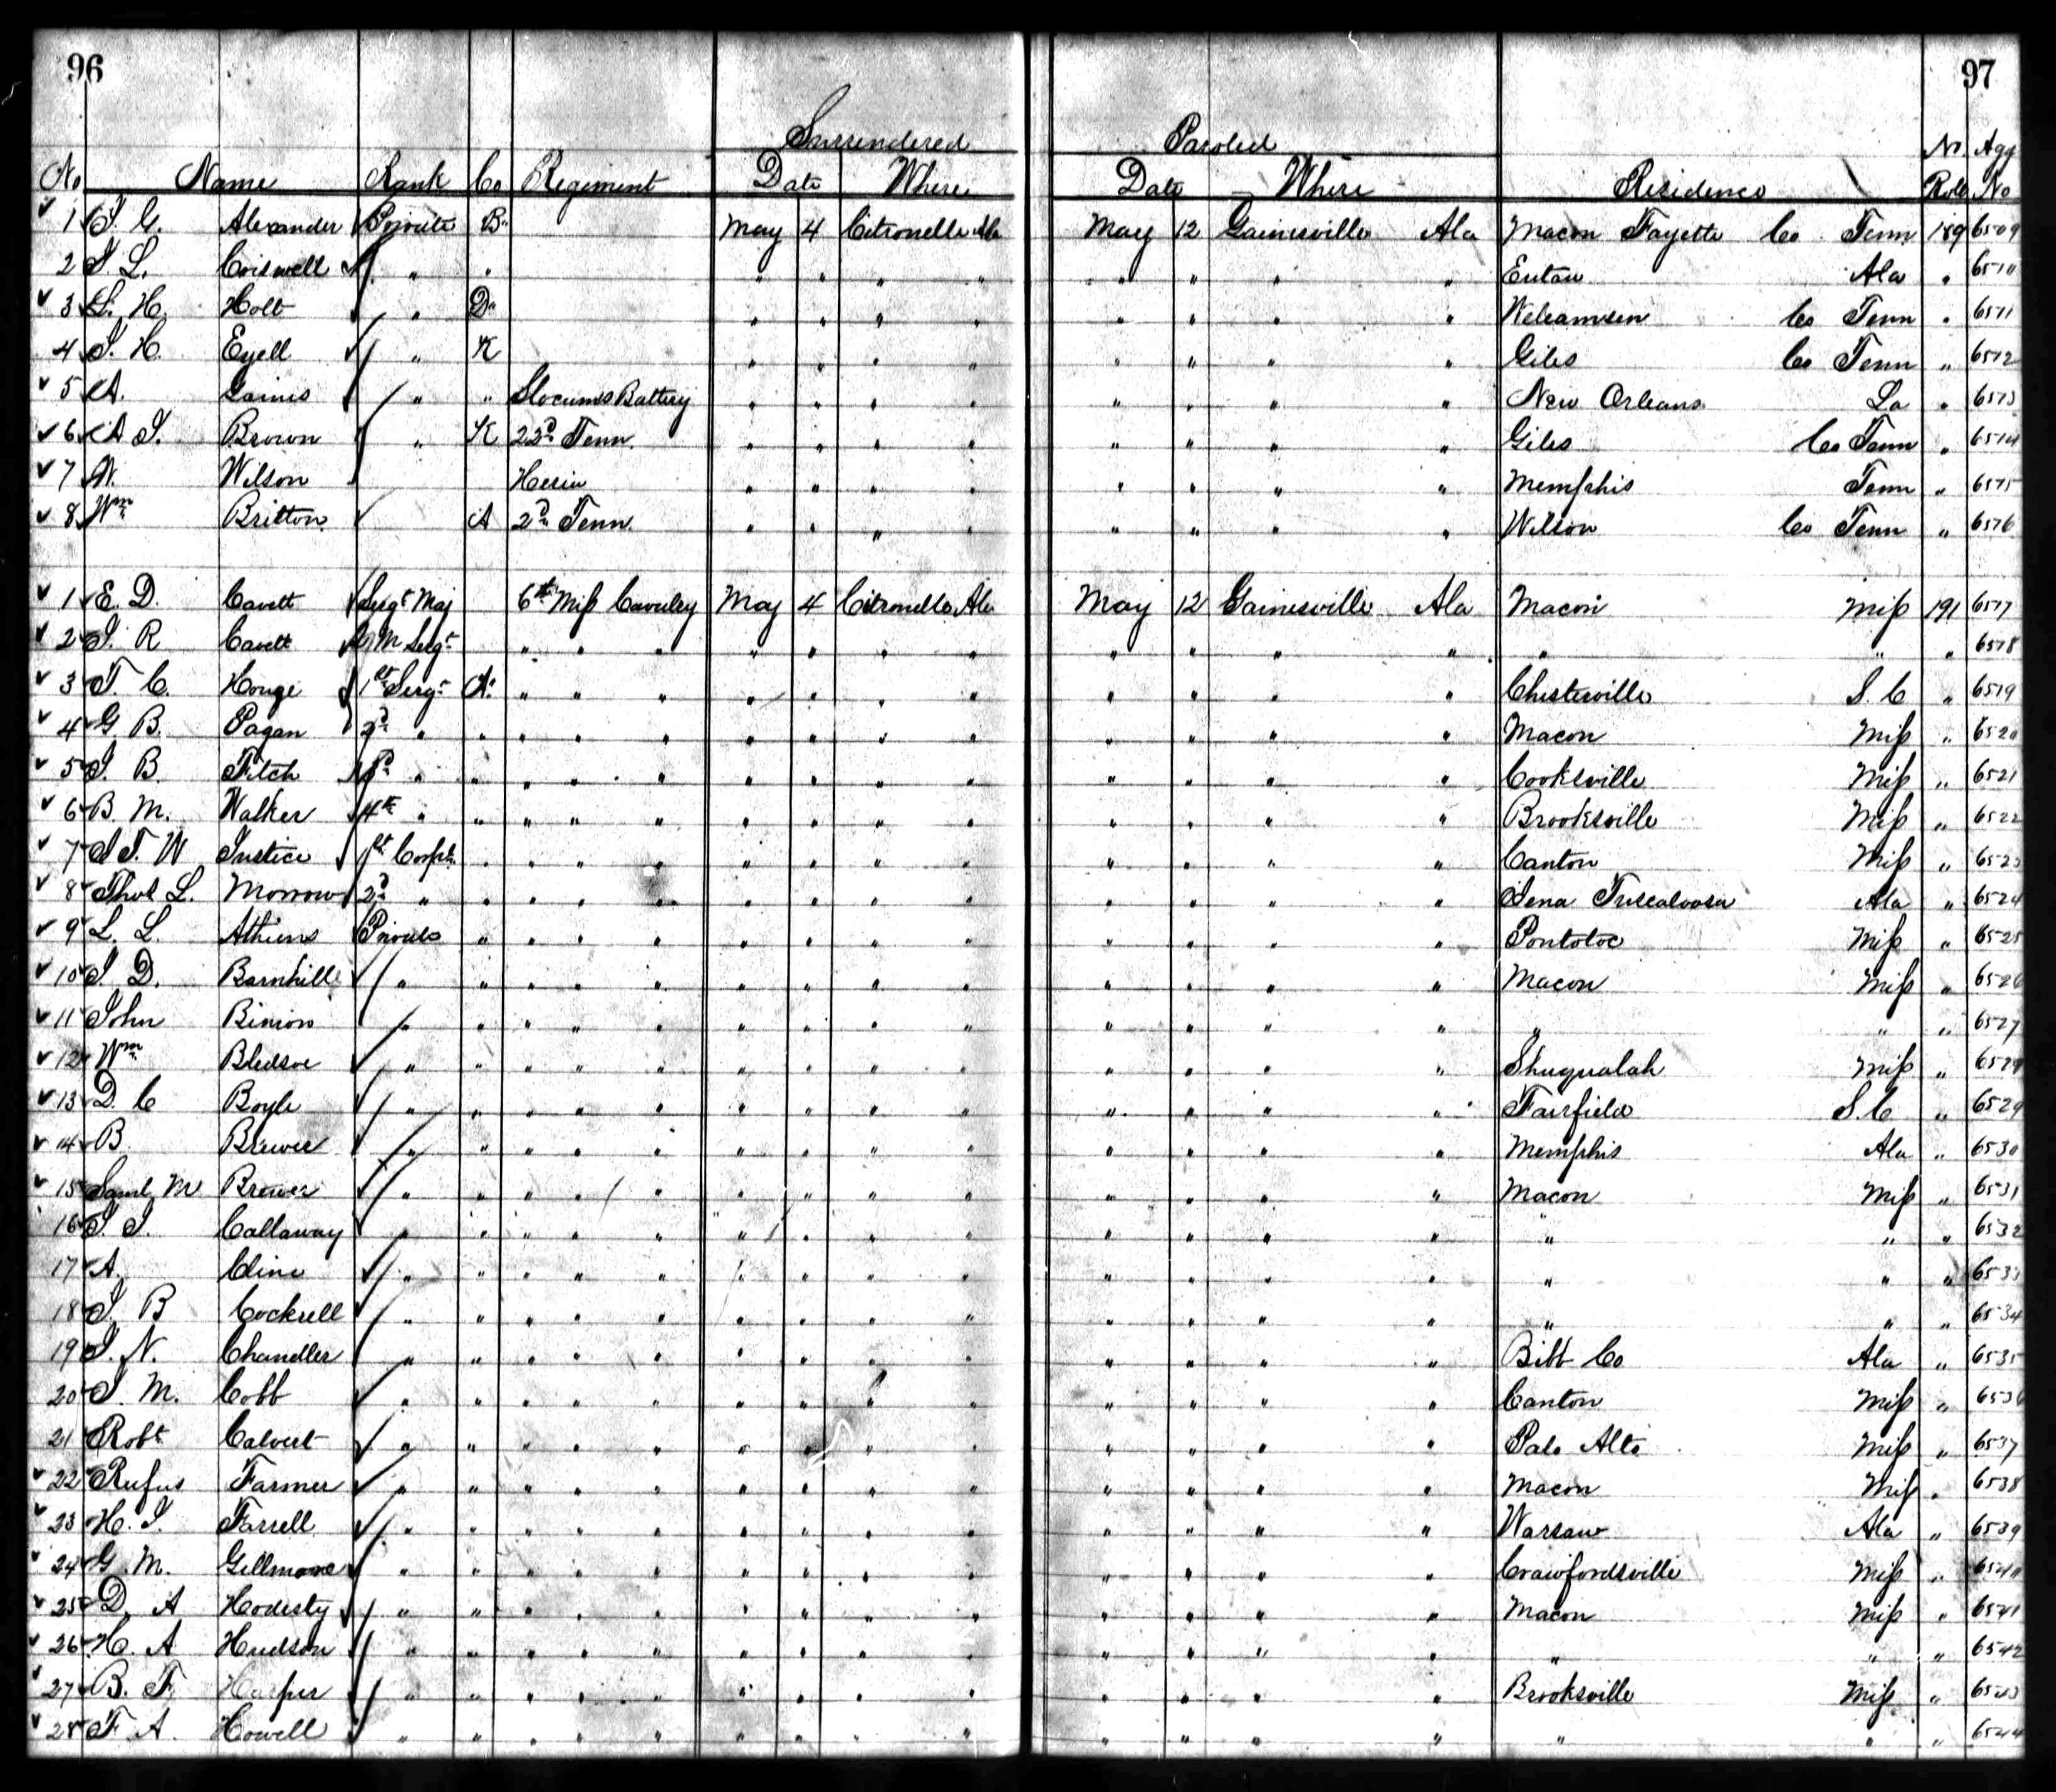 96
97
Surrendered Paroled
No Name Rank Co Regiment Date Where Date Where Residence No. Roll Agg No
1 J. G. Alexander Private B May 4 Citronelle Ala May 12 Gainesville Ala Macon Fayette Co Tenn 189 6509
2 J L. Criswell " " " " " " " " " " Eutaw Ala " 6510
3 L. H. Holt " D " " " " " " " " Co Tenn " 6511
4 J. H. Ezell " K " " " " " " " " Giles Co Tenn " 6512
5 A. Gaines " " Slocums Battery " " " " " " " " New Orleans La " 6513
6 A J. Brown " K 23d Tenn " " " " " " " " Giles Co Tenn " 6514
7 W. Wilson " " " " " " " " Memphis Tenn " 6515
8 Wm Britton A 2d Tenn " " " " " " " " Wilson Co Tenn " 6516
1 E. D. Cavett Sergt Maj 6th Miss Cavalry May 4 Citronelle Ala May 12 Gainesville Ala Macon Miss 191 6517
2 J. R Cavett Q M Sergt " " " " " " " " " " " " " " 6518
3 T. C. Houge 1st Sergt A " " " " " " " " " " " Chesterville S. C " 6519
4 G B. Pagan 2d " " " " " " " " " " " " " Macon Miss " 6520
5 J. B. Fitch 3d " " " " " " " " " " " " " Cooksville Miss " 6521
6 B. M. Walker 4th " " " " " " " " " " " " " Brooksville Miss " 6522
7 J T. W Justice 1st Corpl " " " " " " " " " " " " Canton Miss " 6523
8 Thos L. Morrow 2d " " " " " " " " " " " " " Jena Tuscaloosa Ala " 6524
9 L. L. Athens Private " " " " " " " " " " " " Pontotoc Miss " 6525
10 J. D. Barnhill " " " " " " " " " " " " " Macon Miss " 6526
11 John Binion " " " " " " " " " " " " " " " " 6527
12 Wm Bledsoe " " " " " " " " " " " " " Shuqualah Miss "
13 D. C Boyle " " " " " " " " " " " " " Fairfield S. C " 6529
14 B. Brewer " " " " " " " " " " " " " Memphis Ala " 6530
15 Saml M Brewer " " " " " " " " " " " " " Macon Miss " 6531
16 J. J. Callaway " " " " " " " " " " " " " " " " 6532
17 A. Cline " " " " " " " " " " " " " " " " 6533
18 J. B Cockrell " " " " " " " " " " " " " " " " 6534
19 J. N. Chandler " " " " " " " " " " " " " Bibb Co Ala " 6535
20 J. M. Cobb " " " " " " " " " " " " " Canton Miss " 6536
21 Robt Calvert " " " " " " " " " " " " " Palo Alto Miss " 6537
22 Rufus Farmer " " " " " " " " " " " " " Macon Miss " 6538
23 H. J. Farrell " " " " " " " " " " " " " Warsaw Ala " 6539
24 G. M. Gillmore " " " " " " " " " " " " " Crawfordsville Miss " 6540
25 D. A Hodesty " " " " " " " " " " " " " Macon Miss " 6541
26 H. A Hudson " " " " " " " " " " " " " " " " 6542
27 B. F. Harper " " " " " " " " " " " " " Brooksville Miss " 6543
28 F. A. Howell " " " " " " " " " " " " " " " " 6544